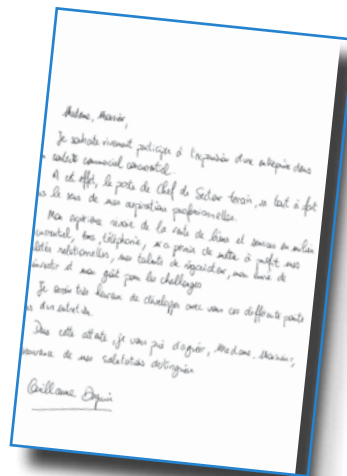 Madame, Monsieur,
Je souhaite vivement participer à l'expansion d'une entreprise dans
un contexte commercial concurrentiel.
A cet effet, le poste de Chef de Secteur terrain, va tout à fait
dans le sens de mes aspirations professionnelles.
Mon expérience réussie de la vente de biens et services en milieu
concurrentiel, , téléphonie, m'a permis de mettre à profit mes
qualités relationnelles, mes talents de négociateur, mon envie de
et mon goût pour les challenges
Je serais très heureux de développer avec vous ces différents points
lors d'un entretien.
Dans cette attente, je vous prie d'agréer, Madame, Monsieur,
l'assurance de mes salutations distinguées
Guillaume